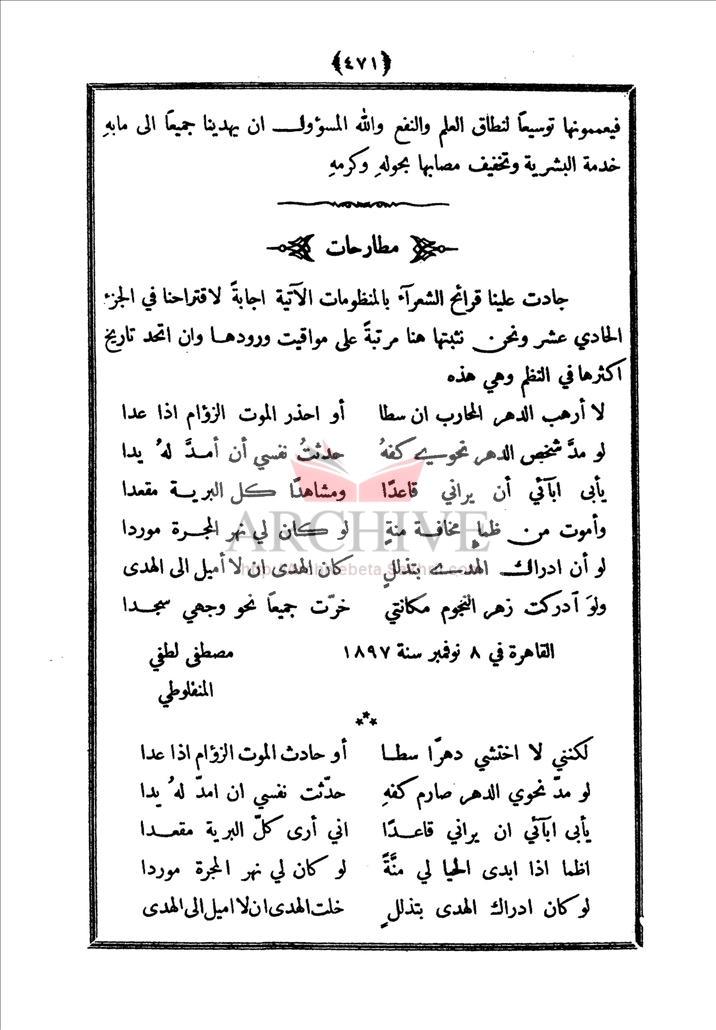 ﴿٤٧١﴾
فيعممونها توسيعًا لنطاق العلم والنفع والله المسؤول ان يهدينا جميعًا الى مابهِ
خدمة البشرية وتخفيف مصابها بحولهِ وكرمهِ
مطارحات
جادت علينا قرائح الشعرآء بالمنظومات الآتية اجابةً لاقتراحنا في الجزء
الحادي عشر ونحن نثبتها هنا مرتبةً على مواقيت ورودها وان اتحد تاريخ
اكثرها في النظم وهي هذه
لا أرهب الدهر المحارب ان سطا أو احذر الموت الزؤام اذا عدا
لو مدَّ شخص الدهر نحوي كفهُ حدثتُ نفسي أن أمدَّ لهُ يدا
يأبى ابآئي أن يراني قاعدًا ومشاهدًا كل البرية مقعدا
وأموت من ظمإٍ مخافة منةٍ لو كان لي نهر المجرة موردا
لو أن ادراك الهدى بتذللٍ كان الهدى ان لا أميل الى الهدى
ولو آدركت زهر النجوم مكانتي خرّت جميعًا نحو وجهي سجدا
القاهرة في ٨ نوفمبر سنة ١٨٩٧ مصطفى لطفي
المنفلوطي
لكنني لا اختشي دهرًا سطا أو حادث الموت الزؤام اذا عدا
لو مدّ نحوي الدهر صارم كفهِ حدّثت نفسي ان امدّ لهُ يدا
يأبى ابآئي ان يراني قاعدًا اني أرى كلّ البرية مقعدا
اظما اذا ابدى الحيا لي منَّةً لو كان لي نهر المجرة موردا
لو كان ادراك الهدى بتذللٍ خلت الهدى ان لا اميل الى الهدى
ARCHIVE